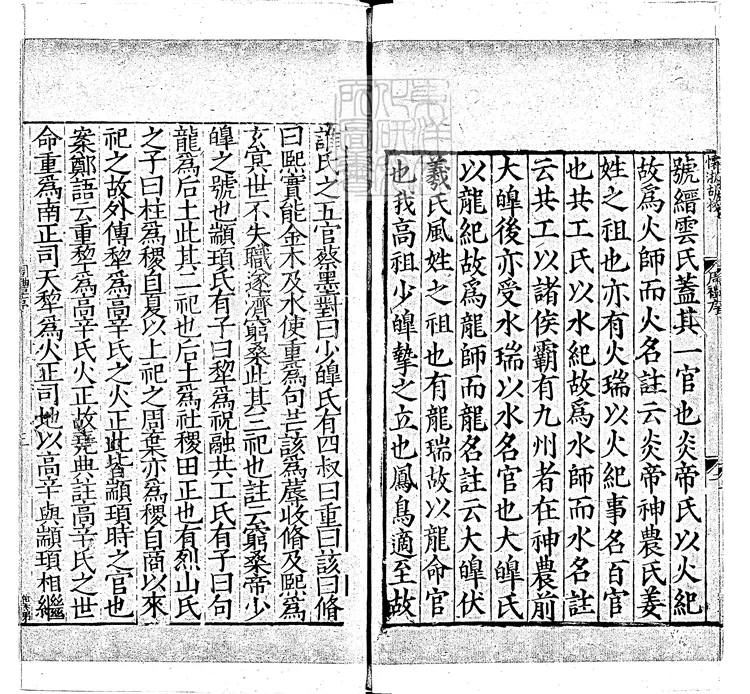 號縉雲氏蓋其一官也炎帝氏以火紀
故爲火師而火名註云炎帝神農氏姜
姓之祖也亦有火瑞以火紀事名百官
也共工氏以水紀故爲水師而水名註
云共工以諸侯霸有九州者在神農前
大皥後亦受水瑞以水名官也大皥氏
以龍紀故爲龍師而龍名註云大皥伏
羲氏風姓之祖也有龍瑞故以龍命官
也我高祖少皥摯之立也鳳鳥適至故
誰氏之五官蔡墨對曰少皥氏有四叔曰重曰該曰脩
曰熙實能金木及水使重爲句芒該爲蓐收脩及熙爲
玄冥世不失職遂濟窮桑此其三祀也註云窮桑帝少
皥之號也顓頊氏有子曰犂爲祝融共工氏有子曰句
龍爲后土此其二祀也后土爲社稷田正也有烈山氏
之子曰柱爲稷自夏以上祀之周棄亦爲稷自商以來
祀之故外傳犂爲高辛氏之火正此皆顓頊時之官也
案鄭語云重犂爲高辛氏火正故堯典註高辛氏之世
命重爲南正司天犂爲火正司地以高辛與顓頊相繼